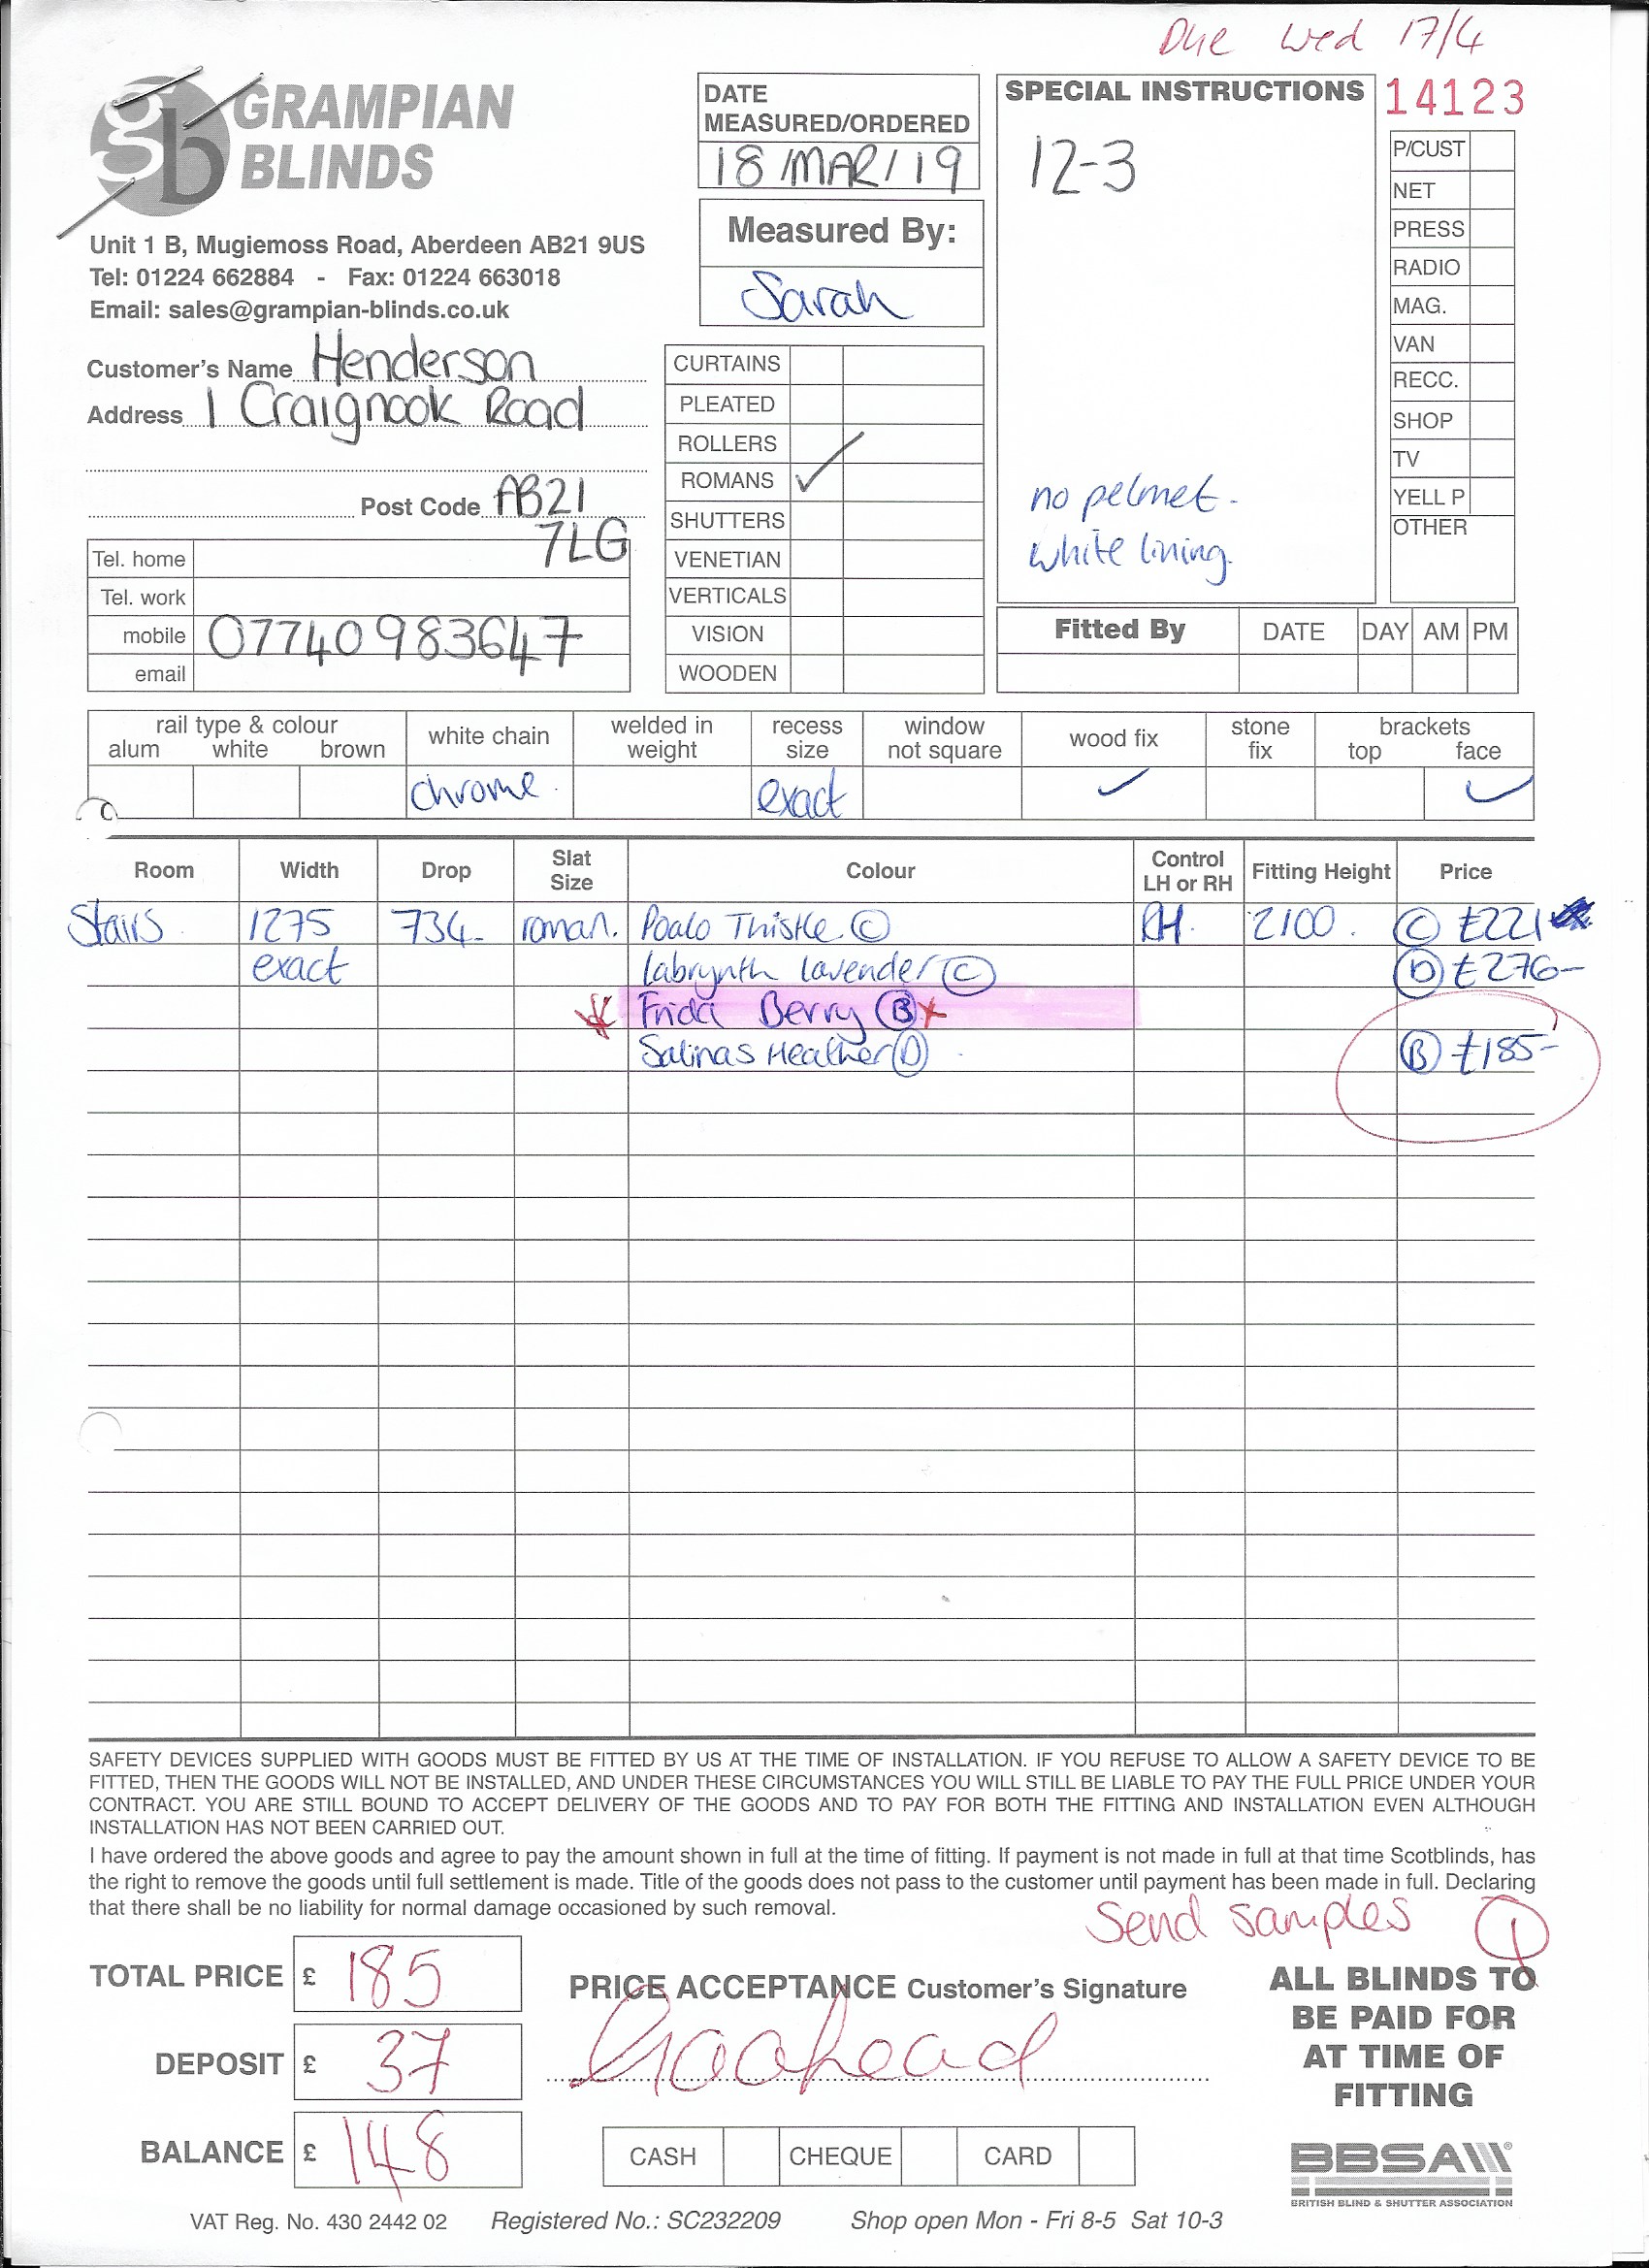 Due Wed 17/4
gb GRAMPIAN
BLINDS
Unit 1 B, Mugiemoss Road, Aberdeen AB21 9US
Tel: 01224 662884 - Fax: 01224 663018
Email: sales@grampian-blinds.co.uk
Customer's Name Henderson
Address 1 Craignook Road
Post Code AB21
7LG
Tel. home
Tel. work
mobile 07740983647
email
DATE
MEASURED/ORDERED
18/MAR/19
Measured By:
Sarah
CURTAINS
PLEATED
ROLLERS
ROMANS ✓
SHUTTERS
VENETIAN
VERTICALS
VISION
WOODEN
SPECIAL INSTRUCTIONS
12-3
no pelmet.
white lining.
14123
P/CUST
NET
PRESS
RADIO
MAG.
VAN
RECC.
SHOP
TV
YELL P
OTHER
Fitted By DATE DAY AM PM
rail type & colour
alum white brown
white chain
chrome
welded in
weight
recess
size
exact
window
not square
wood fix
✓
stone
fix
brackets
top face
✓
Room Width Drop Slat Size Colour Control LH or RH Fitting Height Price
Stairs 1275 734 roman. Poalo Thistle (C) RH. 2100. (C) £221
exact labrynth lavender (C) (D) £276-
Frida Berry (B)
Salinas Heather (D) (B) £185-
SAFETY DEVICES SUPPLIED WITH GOODS MUST BE FITTED BY US AT THE TIME OF INSTALLATION. IF YOU REFUSE TO ALLOW A SAFETY DEVICE TO BE
FITTED, THEN THE GOODS WILL NOT BE INSTALLED, AND UNDER THESE CIRCUMSTANCES YOU WILL STILL BE LIABLE TO PAY THE FULL PRICE UNDER YOUR
CONTRACT. YOU ARE STILL BOUND TO ACCEPT DELIVERY OF THE GOODS AND TO PAY FOR BOTH THE FITTING AND INSTALLATION EVEN ALTHOUGH
INSTALLATION HAS NOT BEEN CARRIED OUT.
I have ordered the above goods and agree to pay the amount shown in full at the time of fitting. If payment is not made in full at that time Scotblinds, has
the right to remove the goods until full settlement is made. Title of the goods does not pass to the customer until payment has been made in full. Declaring
that there shall be no liability for normal damage occasioned by such removal.
Send samples
TOTAL PRICE £ 185
DEPOSIT £ 37
BALANCE £ 148
PRICE ACCEPTANCE Customer's Signature
Goahead
CASH CHEQUE CARD
ALL BLINDS TO
BE PAID FOR
AT TIME OF
FITTING
BBSA
BRITISH BLIND & SHUTTER ASSOCIATION
VAT Reg. No. 430 2442 02 Registered No.: SC232209 Shop open Mon - Fri 8-5 Sat 10-3